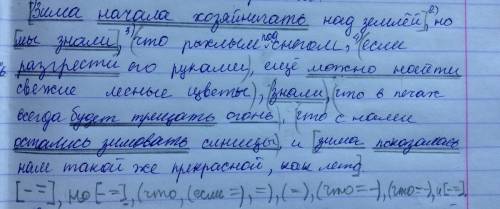 [Зима начала хозяйничать над землёй],²⁾ но
[мы знали],³⁾ (что под рыхлым снегом,⁴⁾ (если
разгрести его руками), ещё можно найти
свежие лесные цветы), [знали], (что в печах
всегда будет трещать огонь), (что с нами
остались зимовать синицы), и [зима показалась
нам такой же прекрасной, как лето].
[-=], но [-=], (что, (если =), =), (=), (что=-), (что=-), и [-=].